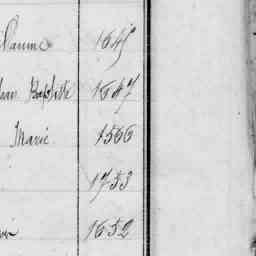 1645
Jean Baptiste 1647
Marie 1566
1753
1652